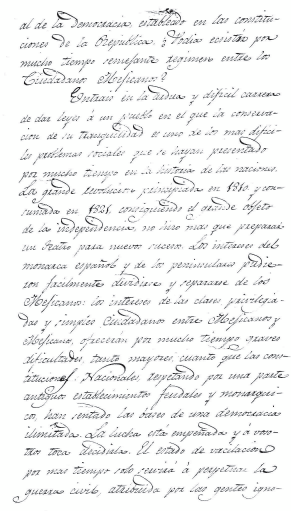 al de la democracia, establecido en las constitu-
ciones de la Republica. ¿Podia ecsistir por
mucho tiempo semejante regimen entre los
Ciudadanos Mejicanos?
Entrais en la ardua y dificil carrera
de dar leyes á un pueblo en el que la conserva-
cion de su tranquilidad es uno de los mas difici-
les problemas sociales que se hayan presentado
por mucho tiempo en la historia de las naciones.
La grande revolucion principiada en 1810 y con-
sumada en 1821, consiguiendo el grande objeto
de la independencia, no hizo mas que preparar
un teatro para nuevos sucesos. Los intereses del
monarca español y de los peninsulares pudie-
ron facilmente dividirse y separarse de los
Mejicanos: los intereses de las clases privilegia-
das y simples Ciudadanos entre Mejicanos y
Mejicanos, ofreceran por mucho tiempo graves
dificultades, tanto mayores, cuanto que las cons-
tituciones Nacionales, respetando por una parte
antiguos establecimientos feudales y monarqui-
cos, han sentado las bases de una democracia
ilimitada. La lucha esta empeñada y á voso-
tros toca decidirla. El estado de vacilacion
por mas tiempo solo servirá á perpetuar la
guerra civil, atribuida por las gentes igno-